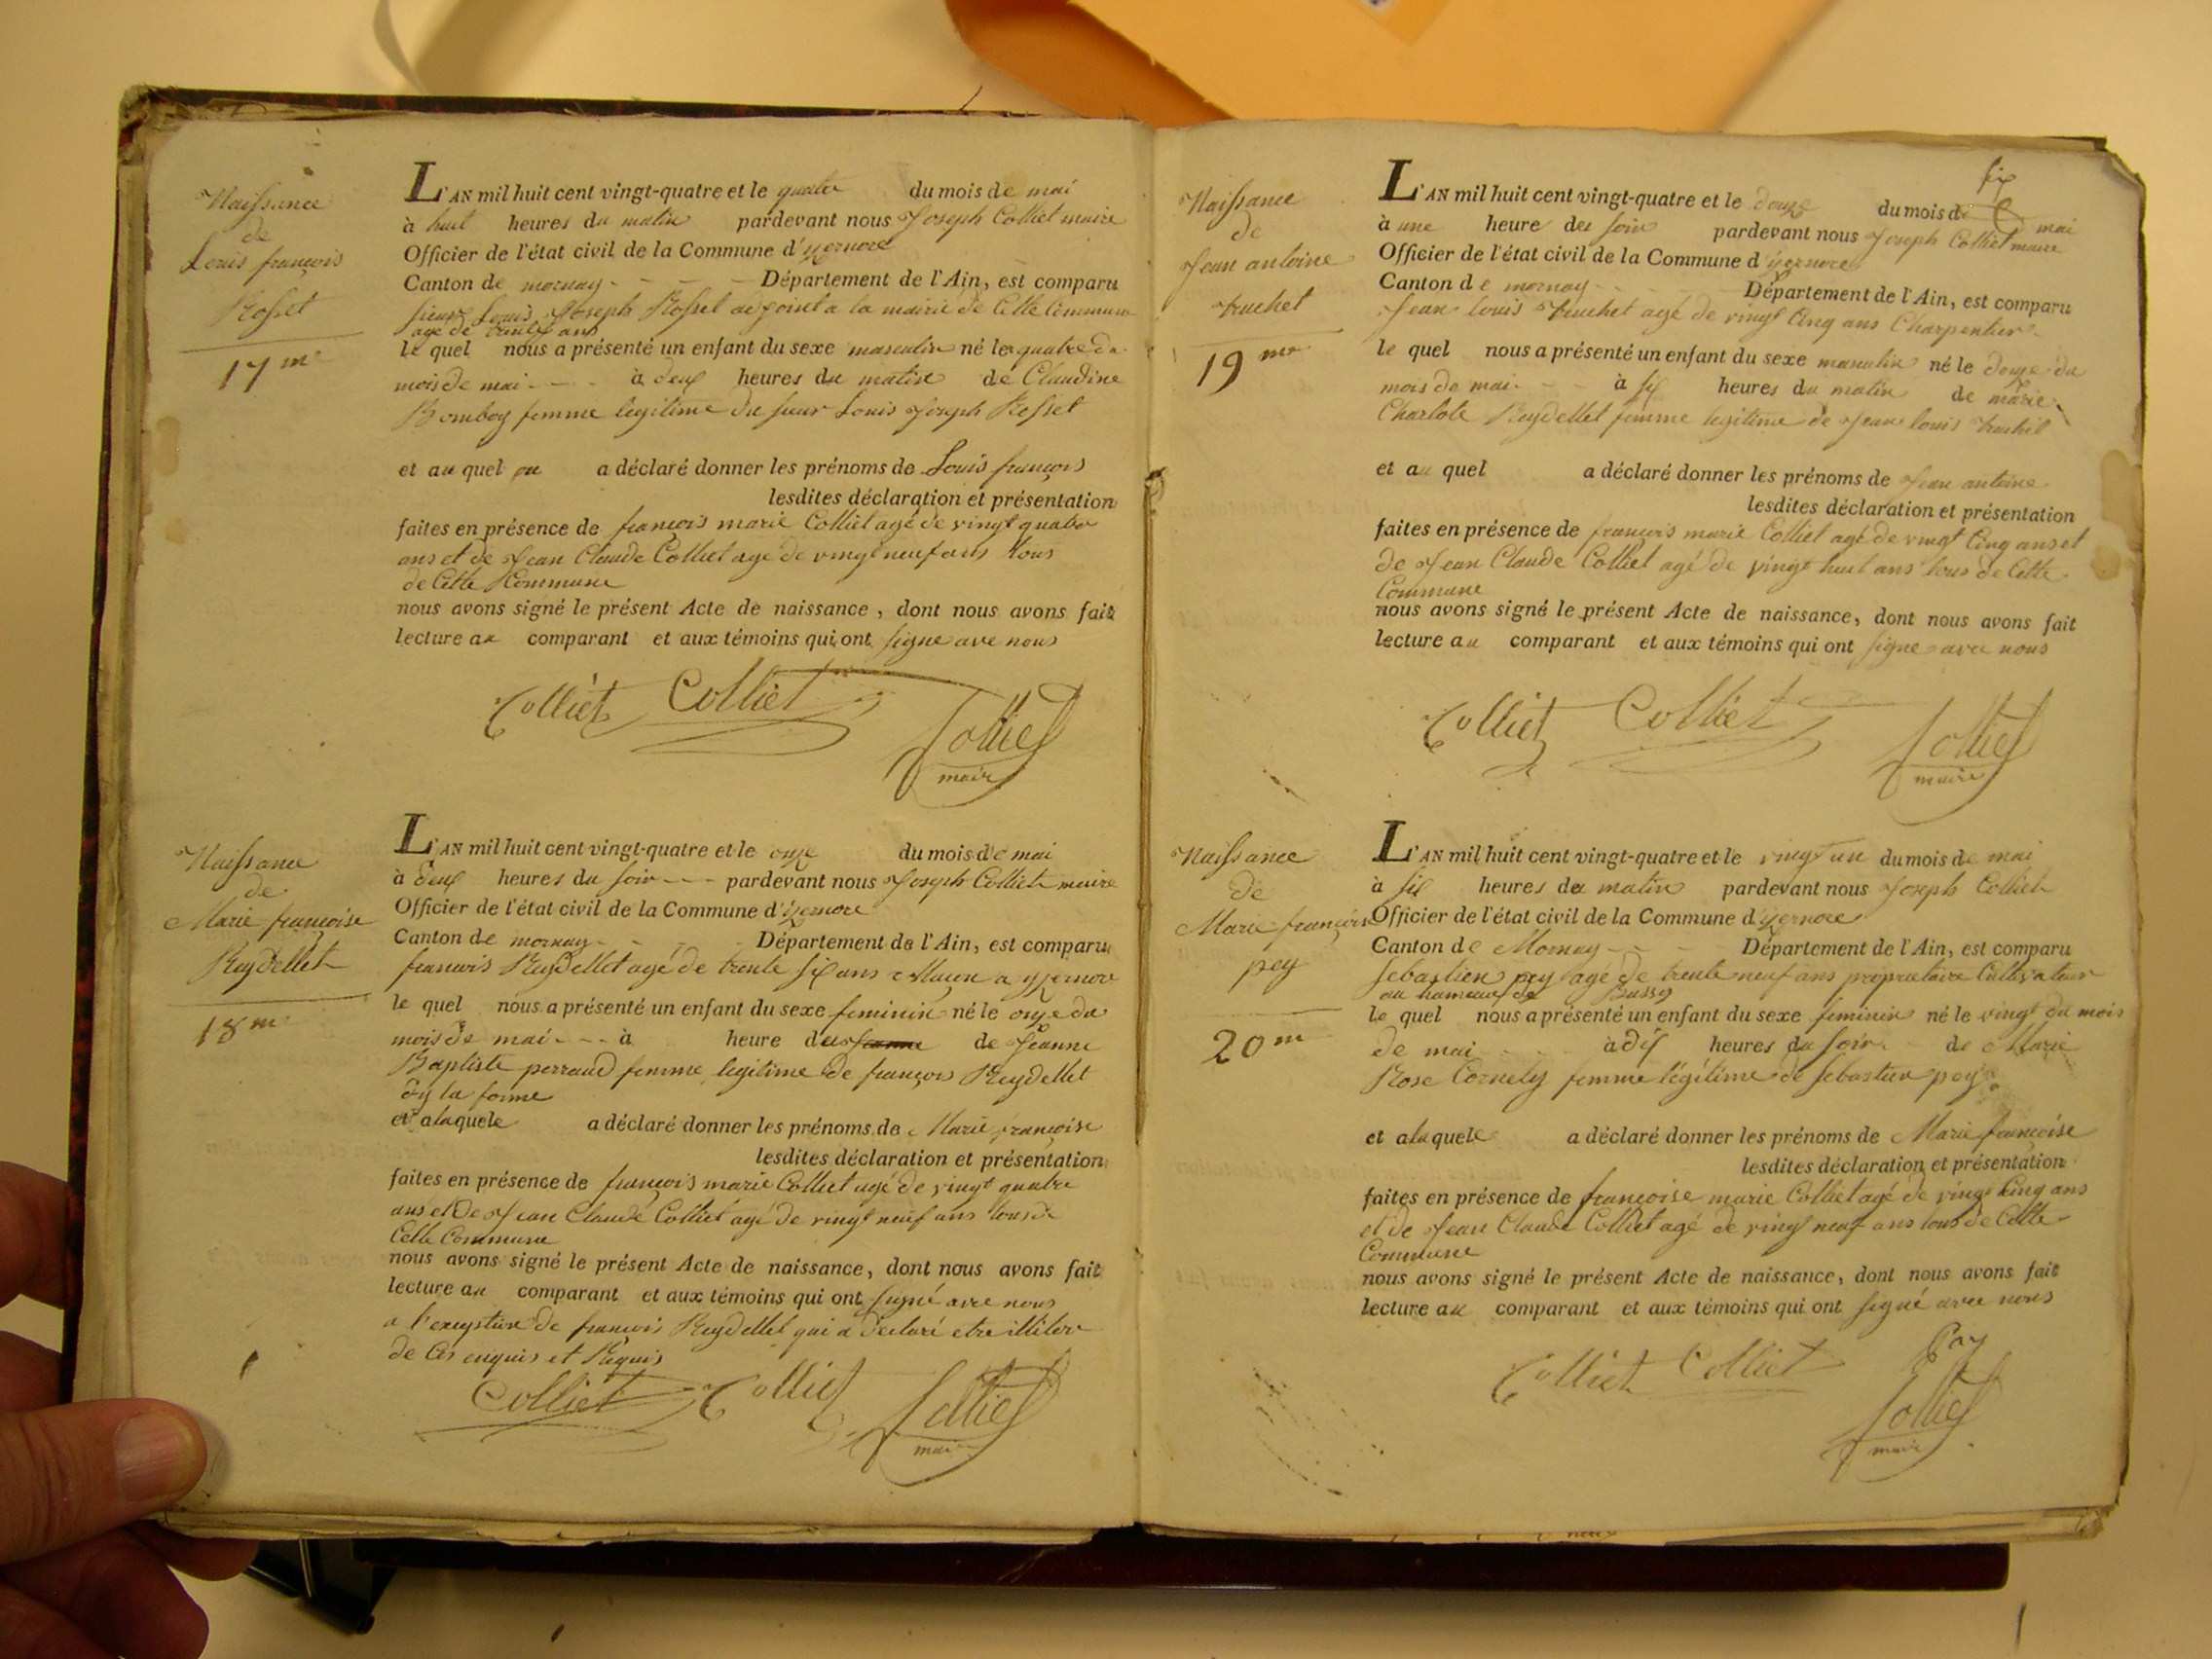 Naissance
de
Louis françois
Rosset
17me
L'AN mil huit cent vingt-quatre et le quatre du mois de mai
à huit heures du matin pardevant nous Joseph Colliet maire
Officier de l'état civil de la Commune d'yzernore
Canton de mornay - - - Département de l'Ain, est comparu
sieur Louis Joseph Rosset adjoint a la mairie de Cette Commune
agé de ans
le quel nous a présenté un enfant du sexe masculin né le quatre du
mois de mai - - - à deux heures du matin de Claudine
Bomboy femme legitime du sieur Louis Joseph Rosset
et au quel on a déclaré donner les prénoms de Louis françois
lesdites déclaration et présentation
faites en présence de françois marie Colliet agé de vingt quatre
ans et de Jean Claude Colliet agé de vingt neuf ans tous
de Cette Commune
nous avons signé le présent Acte de naissance, dont nous avons fait
lecture au comparant et aux témoins qui ont signe ave nous
Colliet Colliet Colliet
maire
Naissance
de
Marie françoise
Reydellet
18me
L'AN mil huit cent vingt-quatre et le onze du mois de mai
à deux heures du soir - - - pardevant nous Joseph Colliet maire
Officier de l'état civil de la Commune d'yzernore
Canton de mornay - - - Département de l'Ain, est comparu
francois Reydellet agé de trente six ans Maçon a yzernore
le quel nous a présenté un enfant du sexe feminin né le onze du
mois de mai - - - à heure du de Jeanne
Baptiste perraud femme legitime de françois Reydellet
et alaquele a déclaré donner les prénoms de Marie françoise
lesdites déclaration et présentation
faites en présence de françois marie Colliet agé de vingt quatre
ans et de Jean Claude Colliet agé de vingt neuf ans tous de
Cette Commune
nous avons signé le présent Acte de naissance, dont nous avons fait
lecture au comparant et aux témoins qui ont signé avec nous
a l'exception de francois Reydellet qui a declaré etre illitere
de Ces enquis et Requis
Colliet Colliet Colliet
maire
Naissance
de
Jean antoine
truchet
19me
six
L'AN mil huit cent vingt-quatre et le douze du mois de mai
à une heure du soir pardevant nous Joseph Colliet maire
Officier de l'état civil de la Commune d'yzernore
Canton de mornay - - - Département de l'Ain, est comparu
Jean louis truchet agé de vingt Cinq ans Charpentier
le quel nous a présenté un enfant du sexe masculin né le douze du
mois de mai - - à six heures du matin de marie
Charlote Reydellet femme legitime de Jean louis truchet
et au quel a déclaré donner les prénoms de Jean antoine
lesdites déclaration et présentation
faites en présence de françois marie Colliet agé de vingt Cinq ans et
de Jean Claude Colliet agé de vingt huit ans tous de Cette
Commune
nous avons signé le présent Acte de naissance, dont nous avons fait
lecture au comparant et aux témoins qui ont signe avec nous
Colliet Colliet Colliet
maire
Naissance
de
Marie françoise
pey
20me
L'AN mil huit cent vingt-quatre et le vingt un du mois de mai
à six heures du matin pardevant nous Joseph Colliet
Officier de l'état civil de la Commune d'yzernore
Canton de Mornay - - - Département de l'Ain, est comparu
Sebastien pey agé de trente neuf ans proprietaire Cultivateur
au hameau de Bussy
le quel nous a présenté un enfant du sexe feminin né le vingt du mois
de mai à dix heures du soir de Marie
Rose Cornely femme légitime de Sebastien pey
et alaquele a déclaré donner les prénoms de Marie françoise
lesdites déclaration et présentation
faites en présence de françoise marie Colliet agé de vingt Cinq ans
et de Jean Claude Colliet agé de vingt neuf ans tous de Cette
Commune
nous avons signé le présent Acte de naissance, dont nous avons fait
lecture au comparant et aux témoins qui ont signé avec nous
Colliet Colliet Pey
Colliet
maire